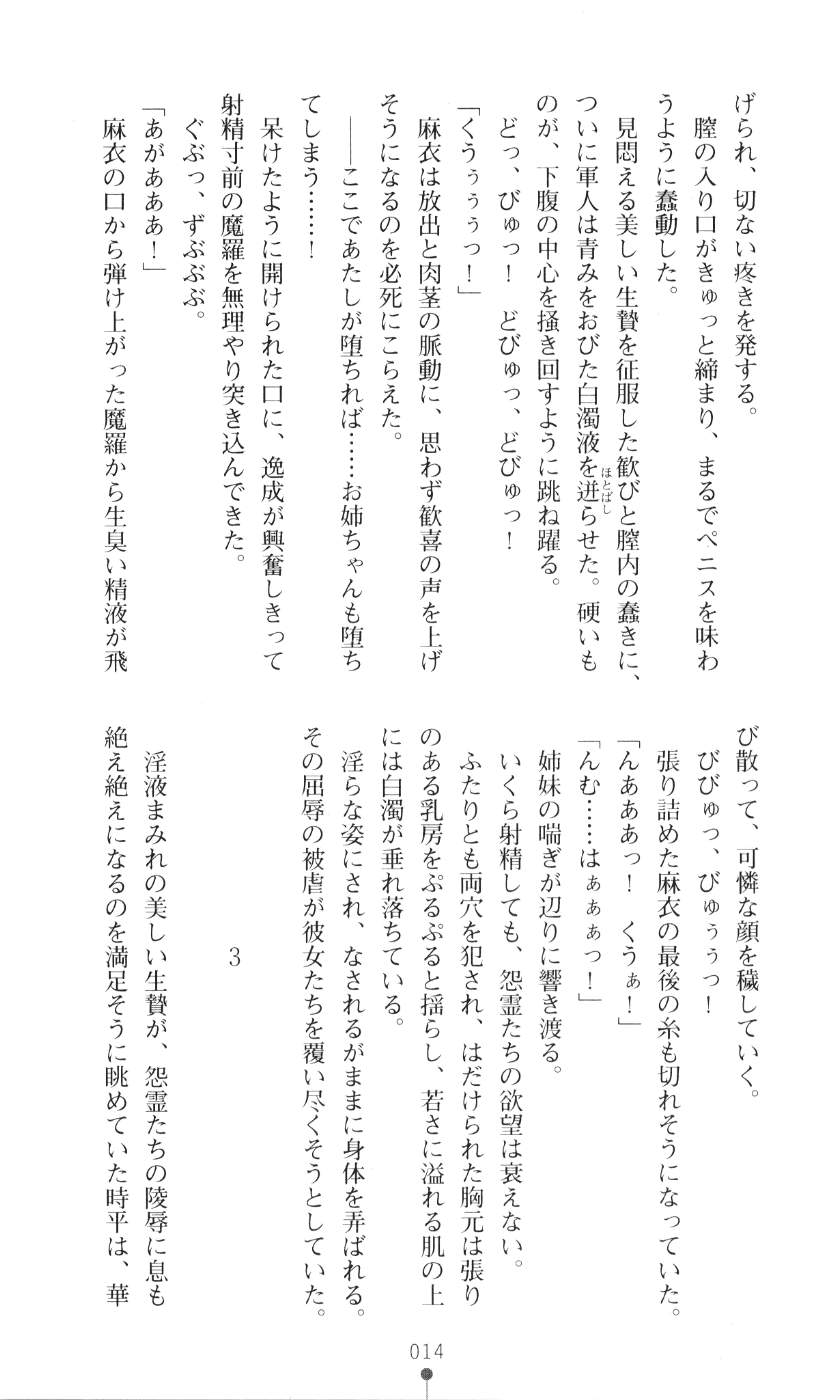 げられ、切ない疼きを発する。
膣の入り口がきゅっと締まり、まるでペニスを味わ
うように蠢動した。
見悶える美しい生贄を征服した歓びと膣内の蠢きに、
ついに軍人は青みをおびた白濁液を迸らせた。硬いも
のが、下腹の中心を掻き回すように跳ね躍る。
どっ、びゅっ！　どびゅっ、どびゅっ！
「くうぅぅぅっ！」
麻衣は放出と肉茎の脈動に、思わず歓喜の声を上げ
そうになるのを必死にこらえた。
――ここであたしが堕ちれば……お姉ちゃんも堕ち
てしまう……！
呆けたように開けられた口に、逸成が興奮しきって
射精寸前の魔羅を無理やり突き込んできた。
ぐぶっ、ずぶぶぶ。
「あがあああ！」
麻衣の口から弾け上がった魔羅から生臭い精液が飛
び散って、可憐な顔を穢していく。
びびゅっ、びゅぅぅっ！
張り詰めた麻衣の最後の糸も切れそうになっていた。
「んあああっ！　くうぁ！」
「んむ……はぁぁぁっ！」
姉妹の喘ぎが辺りに響き渡る。
いくら射精しても、怨霊たちの欲望は衰えない。
ふたりとも両穴を犯され、はだけられた胸元は張り
のある乳房をぷるぷると揺らし、若さに溢れる肌の上
には白濁が垂れ落ちている。
淫らな姿にされ、なされるがままに身体を弄ばれる。
その屈辱の被虐が彼女たちを覆い尽くそうとしていた。
3
淫液まみれの美しい生贄が、怨霊たちの陵辱に息も
絶え絶えになるのを満足そうに眺めていた時平は、華
014